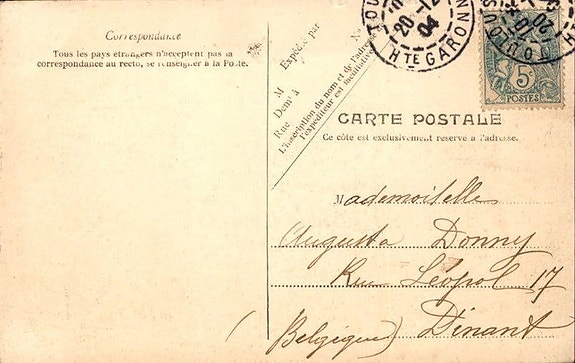 Correspondance
Tous les pays étrangers n'acceptent pas la
correspondance au recto, se renseigner à la Poste.
Expédié par
M
Demt à
Rue
No
L'inscription du nom et de l'adresse de
l'expéditeur est facultative
TOU
20-12
04
HTE GARONN
5c
POSTES
CARTE POSTALE
Ce côté est exclusivement réservé à l'adresse.
Mademoiselle
Augusta Donny
Rue Léopol 17
(Belgique) Dinant